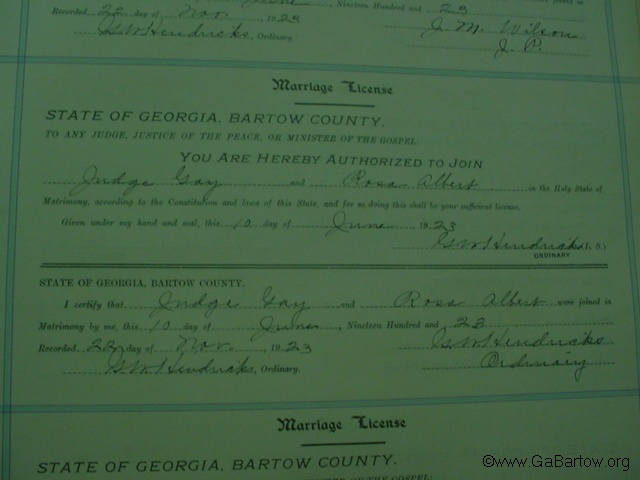 Nineteen Hundred and 23
Recorded 22 day of Nov. 1923
J. M. Wilson
G W Hendricks, Ordinary.
J. P.
Marriage License
STATE OF GEORGIA, BARTOW COUNTY.
TO ANY JUDGE, JUSTICE OF THE PEACE, OR MINISTER OF THE GOSPEL:
YOU ARE HEREBY AUTHORIZED TO JOIN
Judge Gay and Rosa Albert in the Holy State of
Matrimony, according to the Constitution and laws of this State, and for so doing this shall be your sufficient license.
Given under my hand and seal, this 10 day of June 1923
G W Hendricks (L. S.)
ORDINARY
STATE OF GEORGIA, BARTOW COUNTY.
I certify that Judge Gay and Rosa Albert were joined in
Matrimony by me, this 10 day of June, Nineteen Hundred and 23
Recorded 22 day of Nov. 1923
G W Hendricks
G W Hendricks, Ordinary.
Ordinary
Marriage License
STATE OF GEORGIA, BARTOW COUNTY.
©www.GaBartow.org